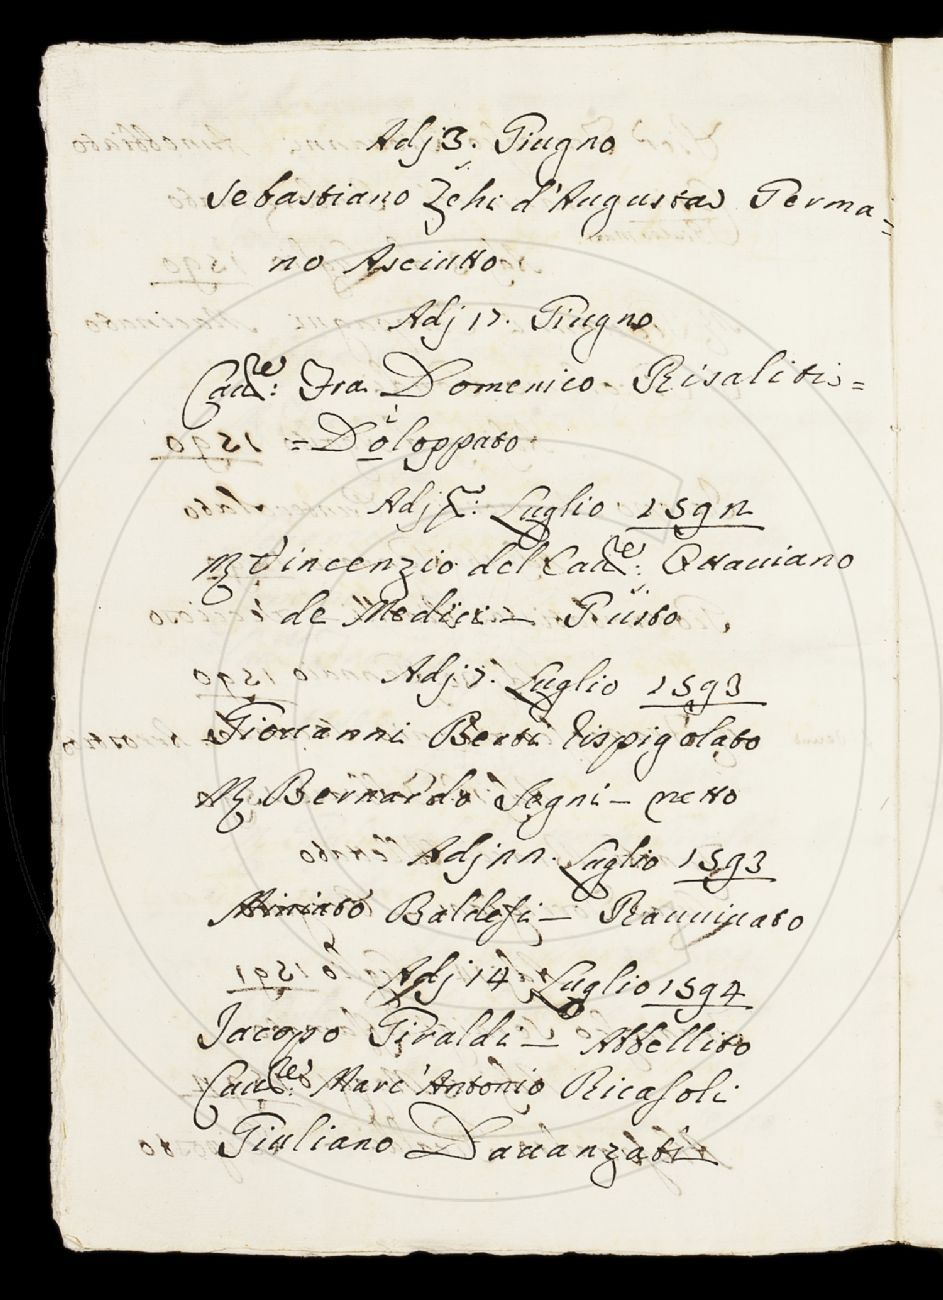 Adj 3. Giugno
Sebastiano Zehi d'Augusta Germa=
no Asciutto
Adj 17. Giugno
Cau.re: Fra. Domenico Risaliti=
=Diloppato
Adj p.o: Luglio 1592
Mr Vincenzio del Cau.re: Ottauiano
de Medici — Giusto
Adj 7. Luglio 1593
Giouanni Berti Rispigolato
Mr Bernardo Segni — netto
Adj 22. Luglio 1593
Miniato Baldesi — Rauuiuato
Adj 14 Luglio 1594
Jacopo Giraldi — Abbellito
Cau.re: Marc'Antonio Ricasoli
Giuliano Dauanzati